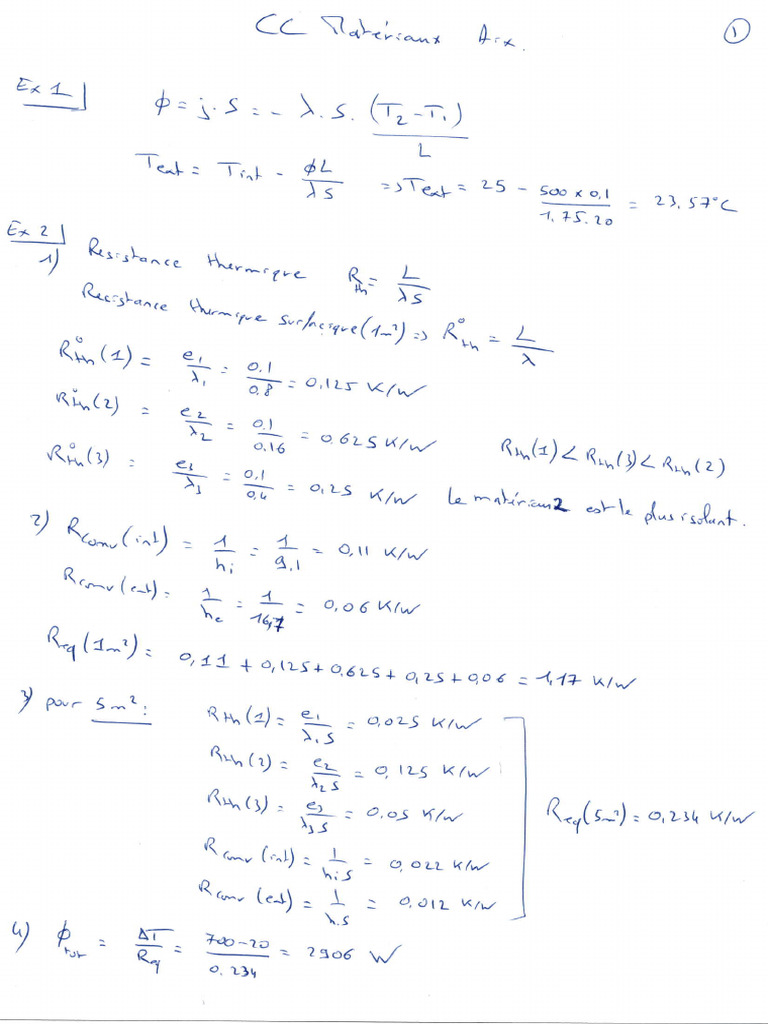 CC Matériaux Aix. 1
Ex 1
ϕ = j.S = - λ.S. (T2-T1)/L
Text = Tint - ϕL/λS => Text = 25 - 500 x 0,1/1,75.20 = 23,57°C
Ex 2
1) Resistance thermique Rth = L/λS
Resistance thermique surfacique (1m²) => R°th = L/λ
R°th(1) = e1/λ1 = 0.1/0.8 = 0,125 K/W
R°th(2) = e2/λ2 = 0.1/0.16 = 0.625 K/W
R°th(3) = e3/λ3 = 0,1/0,4 = 0,25 K/W
Rth(1) < Rth(3) < Rth(2)
Le matériau 2 est le plus isolant.
2) Rconv(int) = 1/hi = 1/9,1 = 0,11 K/W
Rconv(ext) = 1/he = 1/16,7 = 0,06 K/W
Req(1m²) = 0,11 + 0,125 + 0,625 + 0,25 + 0,06 = 1,17 K/W
3) pour 5m² :
Rth(1) = e1/λ1S = 0,025 K/W
Rth(2) = e2/λ2S = 0,125 K/W
Rth(3) = e3/λ3S = 0,05 K/W
Rconv(int) = 1/hiS = 0,022 K/W
Rconv(ext) = 1/h.S = 0,012 K/W
Req(5m²) = 0,234 K/W
4) ϕtot = ΔT/Req = 700-20/0.234 = 2906 W